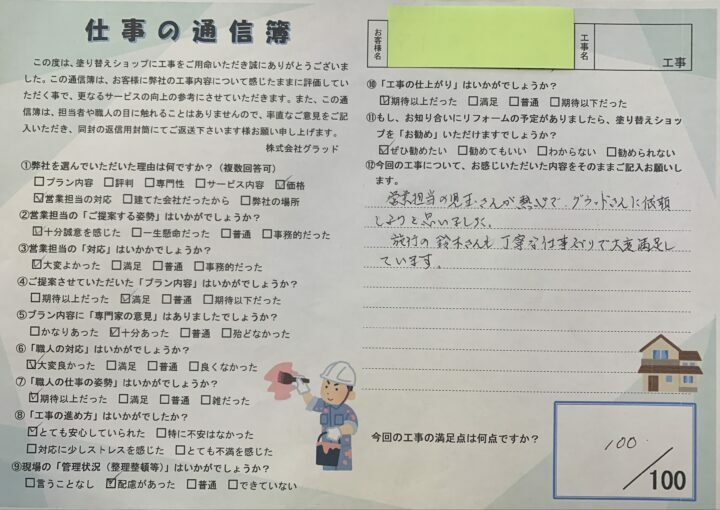 仕事の通信簿
この度は、塗り替えショップに工事をご用命いただき誠にありがとうございま
した。この通信簿は、お客様に弊社の工事内容について感じたままに評価してい
ただく事で、更なるサービスの向上の参考にさせていただきます。また、この通
信簿は、担当者や職人の目に触れることはありませんので、率直なご意見をご記
入いただき、同封の返信用封筒にてご返送下さいます様お願い申し上げます。
株式会社グラッド
①弊社を選んでいただいた理由は何ですか？（複数回答可）
□プラン内容 □評判 □専門性 □サービス内容 ☑価格
☑営業担当の対応 □建てた会社だったから □弊社の場所
②営業担当の「ご提案する姿勢」はいかがでしょうか？
☑十分誠意を感じた □一生懸命だった □普通 □事務的だった
③営業担当の「対応」はいかかでしょうか？
☑大変よかった □満足 □普通 □事務的だった
④ご提案させていただいた「プラン内容」はいかがでしょうか？
□期待以上だった ☑満足 □普通 □期待以下だった
⑤プラン内容に「専門家の意見」はありましたでしょうか？
□かなりあった ☑十分あった □普通 □殆どなかった
⑥「職人の対応」はいかがでしょうか？
☑大変良かった □満足 □普通 □良くなかった
⑦「職人の仕事の姿勢」はいかがでしょうか？
☑期待以上だった □満足 □普通 □雑だった
⑧「工事の進め方」はいかがでしたか？
☑とても安心していられた □特に不安はなかった
□対応に少しストレスを感じた □とても不満を感じた
⑨現場の「管理状況（整理整頓等）」はいかがでしょうか？
□言うことなし ☑配慮があった □普通 □できていない
お客様名
工事名
工事
⑩「工事の仕上がり」はいかがでしょうか？
☑期待以上だった □満足 □普通 □期待以下だった
⑪もし、お知り合いにリフォームの予定がありましたら、塗り替えショッ
プを「お勧め」いただけますでしょうか？
☑ぜひ勧めたい □勧めてもいい □わからない □勧められない
⑫今回の工事について、お感じいただいた内容をそのままご記入お願いしま
す。
営業担当の児玉さんが熱心で、グラッドさんに依頼
しようと思いました。
施行の鈴木さんも丁寧な仕事ぶりで大変満足し
ています。
今回の工事の満足点は何点ですか？
100
/100